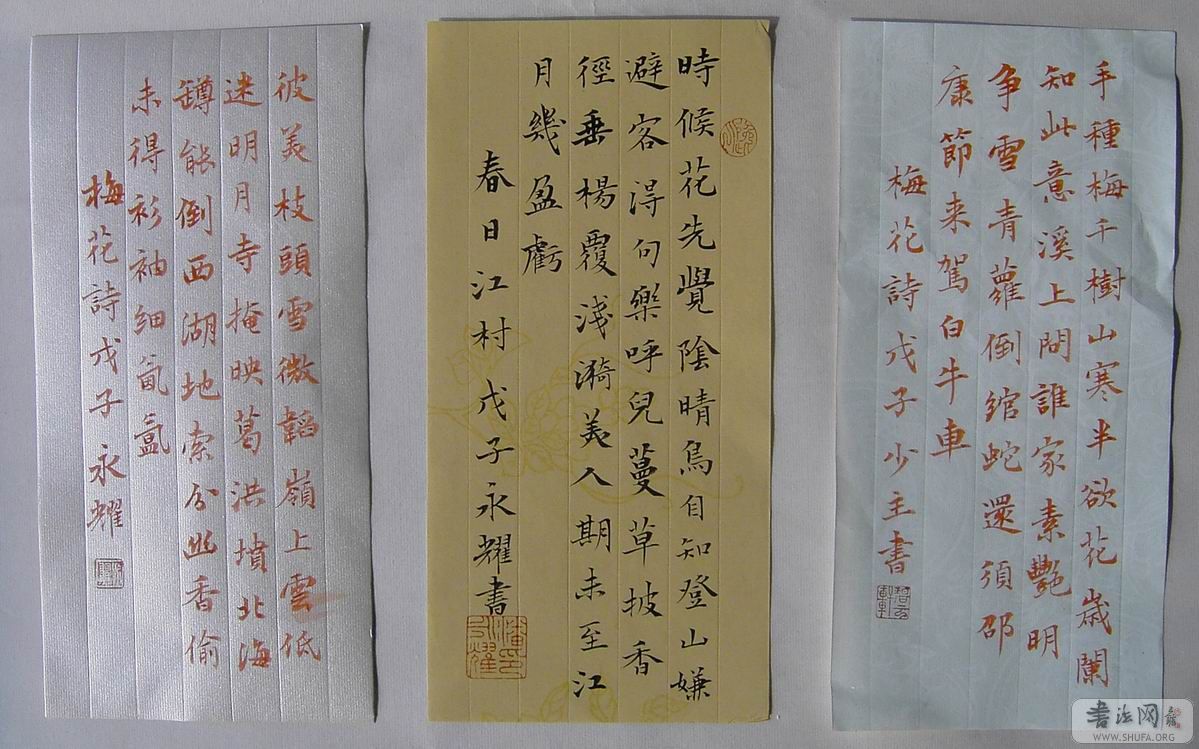 手種梅千樹山寒半欲花歲闌
知此意溪上問誰家素艷明
争雪青蘿倒綰蛇還須邵
康節来駕白牛車
梅花詩戊子少主書
時候花先覺陰晴鳥自知登山嫌
避客得句樂呼兒蔓草披香
徑垂楊覆淺漪美人期未至江
月幾盈虧
春日江村戊子永耀書
彼美枝頭雪微韜嶺上雲低
迷明月寺掩映葛洪墳北海
罇能倒西湖地索分幽香偷
未得衫袖细氤氳
梅花詩戊子永耀
书法网
WWW.SHUFA.ORG